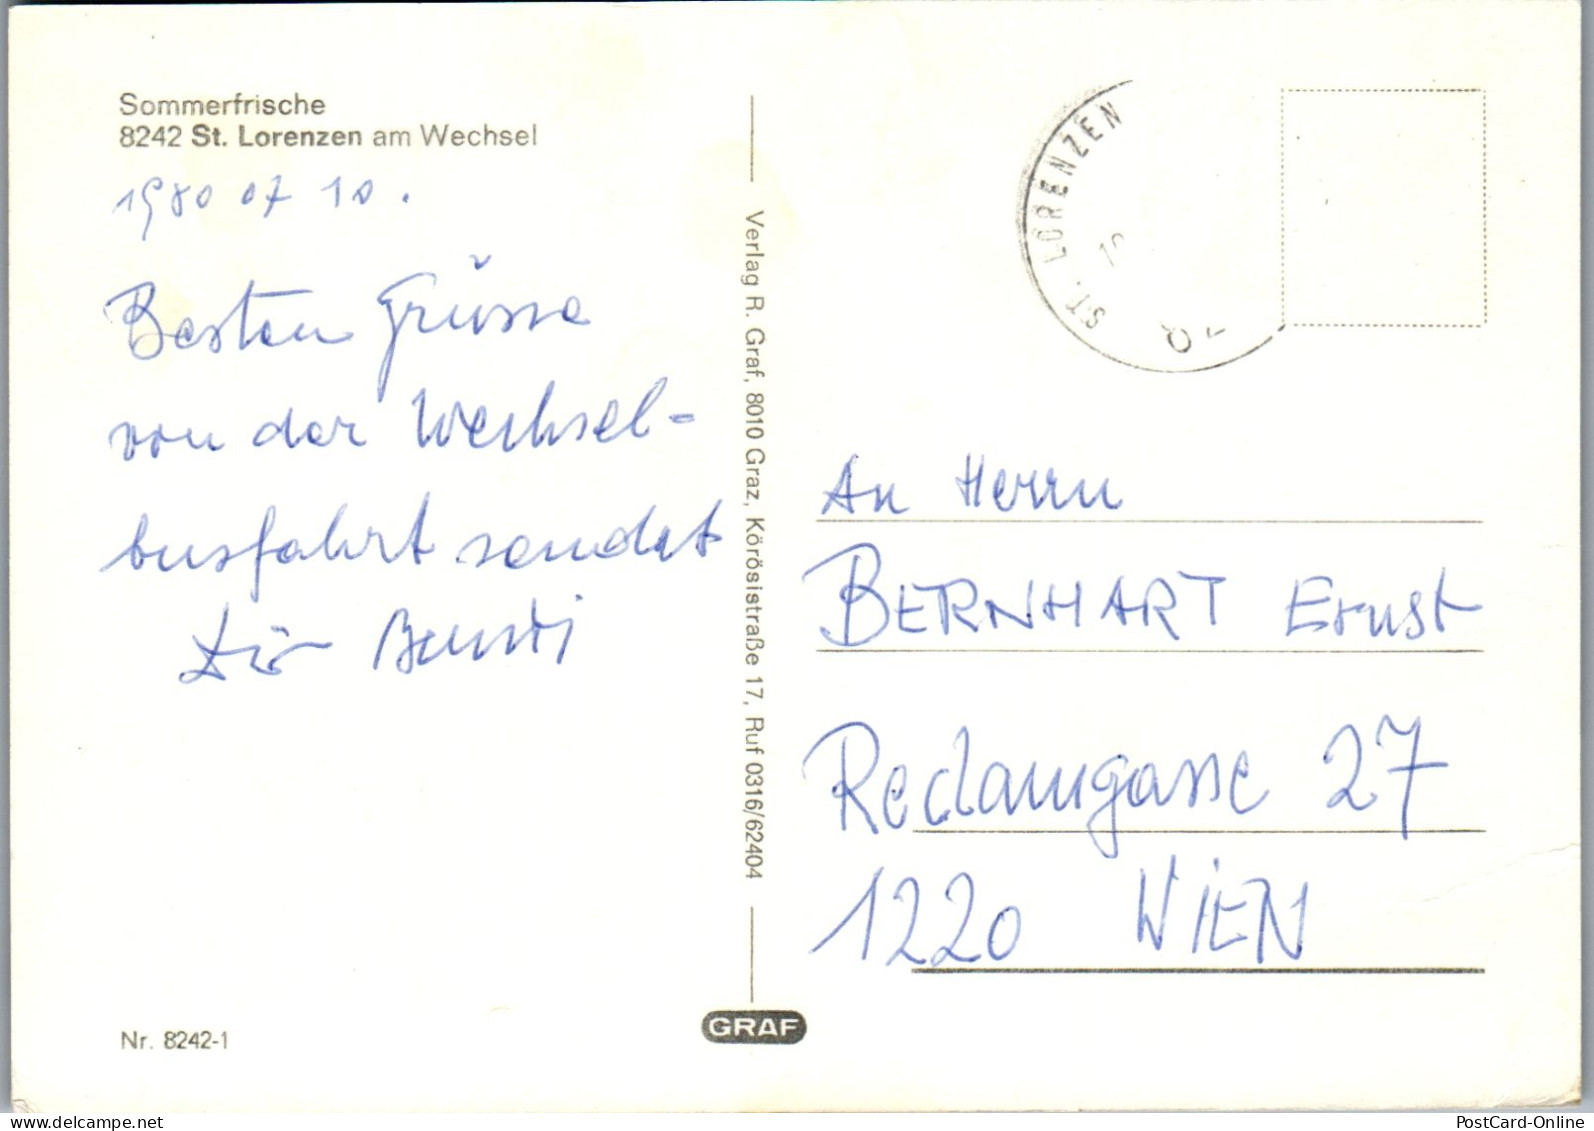 Sommerfrische
8242 St. Lorenzen am Wechsel
1980 07 10.
Besten Grüsse
von der Wechsel-
busfahrt sendet
dir
Verlag R. Graf, 8010 Graz, Körösistraße 17, Ruf 0316/62404
ST. LORENZEN
An Herrn
BERNHART Ernst
Reclamgasse 27
1220 WIEN
Nr. 8242-1
GRAF
PostCard-Online